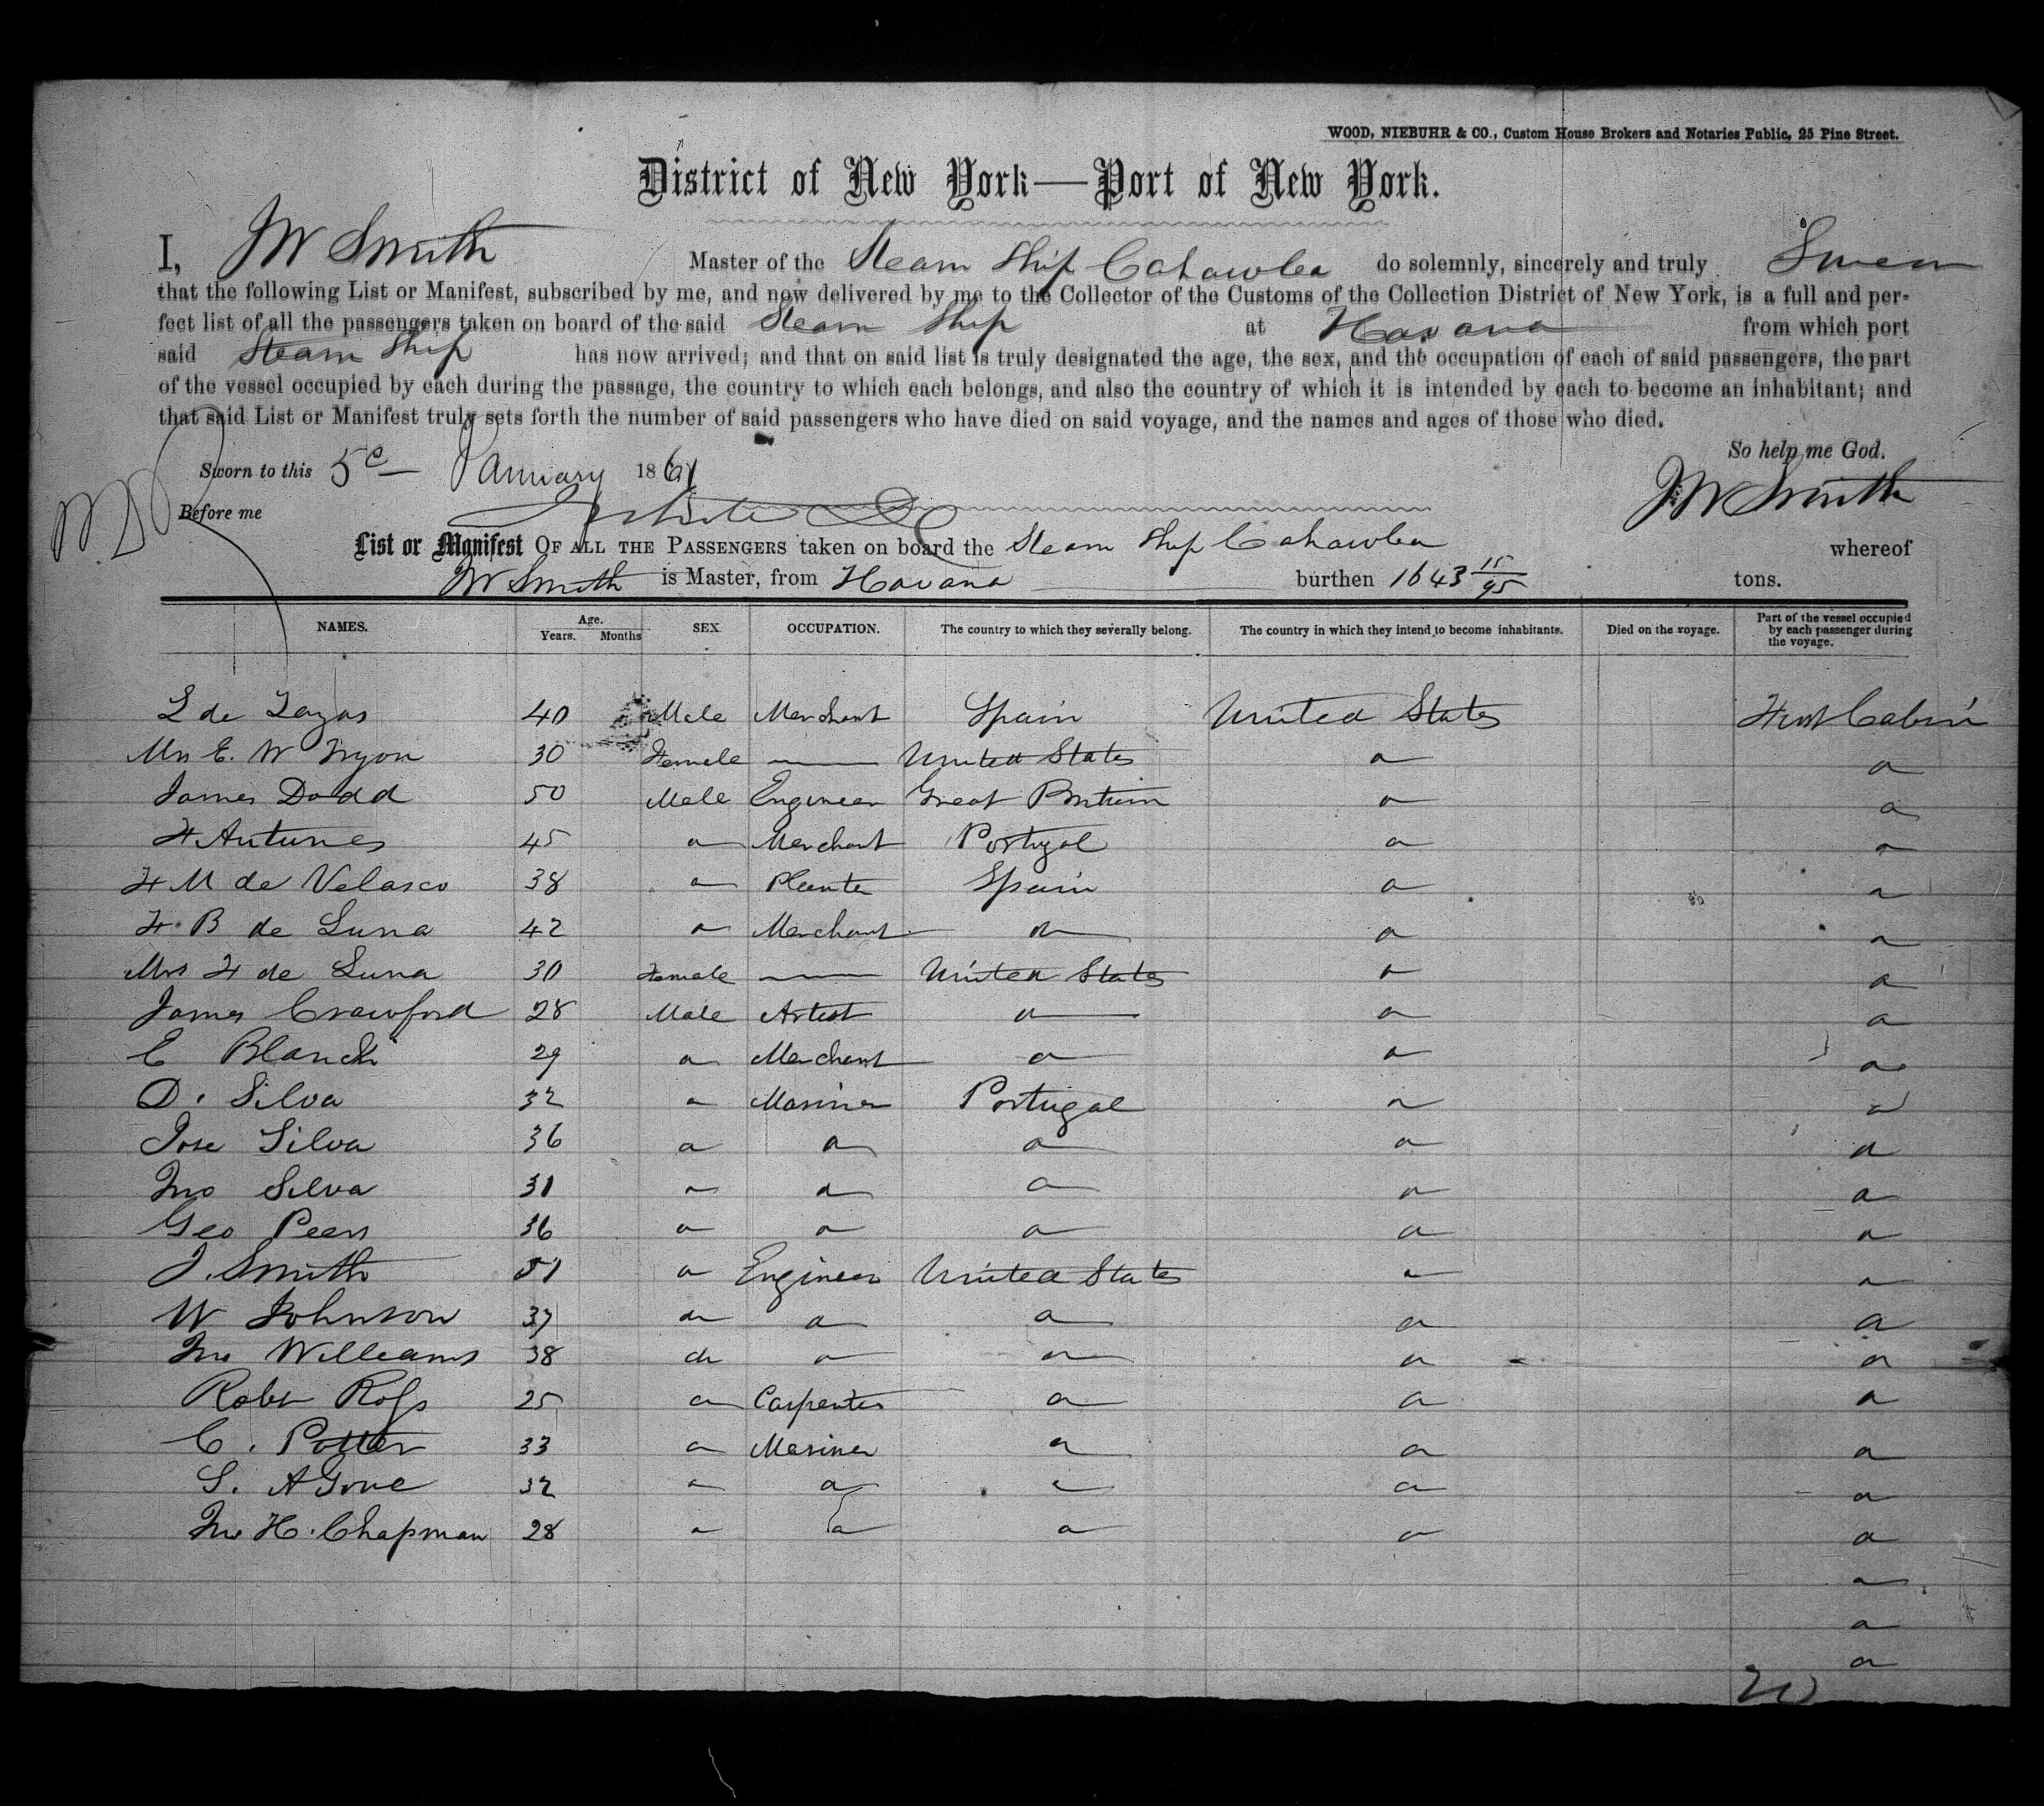 WOOD, NIEBUHR & CO., Custom House Brokers and Notaries Public, 25 Pine Street.
District of New York—Port of New York.
I, JW Smith Master of the Steam Ship Cahawba do solemnly, sincerely and truly Swear
that the following List or Manifest, subscribed by me, and now delivered by me to the Collector of the Customs of the Collection District of New York, is a full and per-
fect list of all the passengers taken on board of the said Steam Ship at Havana from which port
said Steam Ship has now arrived; and that on said list is truly designated the age, the sex, and the occupation of each of said passengers, the part
of the vessel occupied by each during the passage, the country to which each belongs, and also the country of which it is intended by each to become an inhabitant; and
that said List or Manifest truly sets forth the number of said passengers who have died on said voyage, and the names and ages of those who died.
So help me God.
Sworn to this 5th January 1861
JW Smith
Before me
List or Manifest OF ALL THE PASSENGERS taken on board the Steam Ship Cahawba whereof
JW Smith is Master, from Havana burthen 1643 15/95 tons.
NAMES. Age. Years. Months SEX. OCCUPATION. The country to which they severally belong. The country in which they intend to become inhabitants. Died on the voyage. Part of the vessel occupied by each passenger during the voyage.
L de 40 Male Merchant Spain United States First Cabin
Mrs E. W 30 Female — United States " "
James Dodd 50 Male Engineer Great Britain " "
F Antunes 45 " Merchant Portugal " "
F M de Velasco 38 " Planter Spain " "
F. B de Luna 42 " Merchant " " "
Mrs F de Luna 30 Female — United States " "
James Crawford 28 Male Artist " " "
E Blanch 29 " Merchant " " "
D. Silva 32 " Mariner Portugal " "
Jose Silva 36 " " " " "
Jno Silva 31 " " " " "
Geo Peers 36 " " " " "
J. Smith 51 " Engineer United States " "
W Johnson 37 " " " " "
Jno Williams 38 " " " " "
Robt Ross 25 " Carpenter " " "
C. Potter 33 " Mariner " " "
S. A Gove 32 " " " " "
Jno H. Chapman 28 " " " " "
"
"
"
20